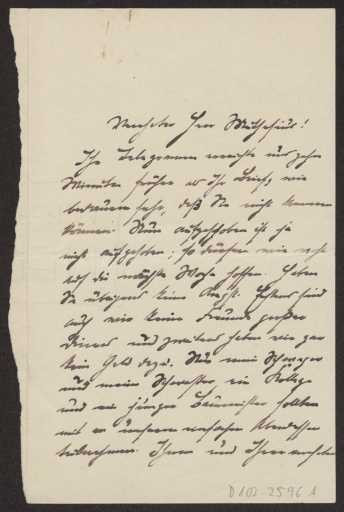 Verehrter Herr Muthesius!
Ihr Telegramm erreichte uns zehn
Minuten früher als Ihr Brief, wir
bedauern sehr, daß Sie nicht kommen
können. Nun aufgeschoben ist ja
nicht aufgehoben; so dürfen wir wohl
auf die nächste Woche hoffen. Haben
Sie übrigens keine Angst. Erstens sind
auch wir keine Freunde großer
Diners und zweitens haben wir gar
kein Geld dazu. Nur mein Schwager
und meine Schwester, ein Kollege
und ein junger Baumeister sollten
mit an unserem einfachen Abendessen
teilnehmen. Ihnen und Ihrer verehrten
D 102-2596 A